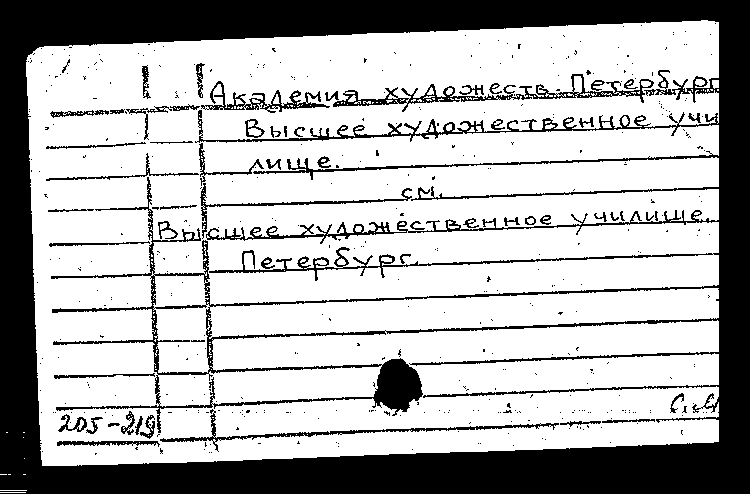 Академия художеств. Петербург
Высшее художественное учи
лище.
см.
Высшее художественное училище.
Петербург.
205-219